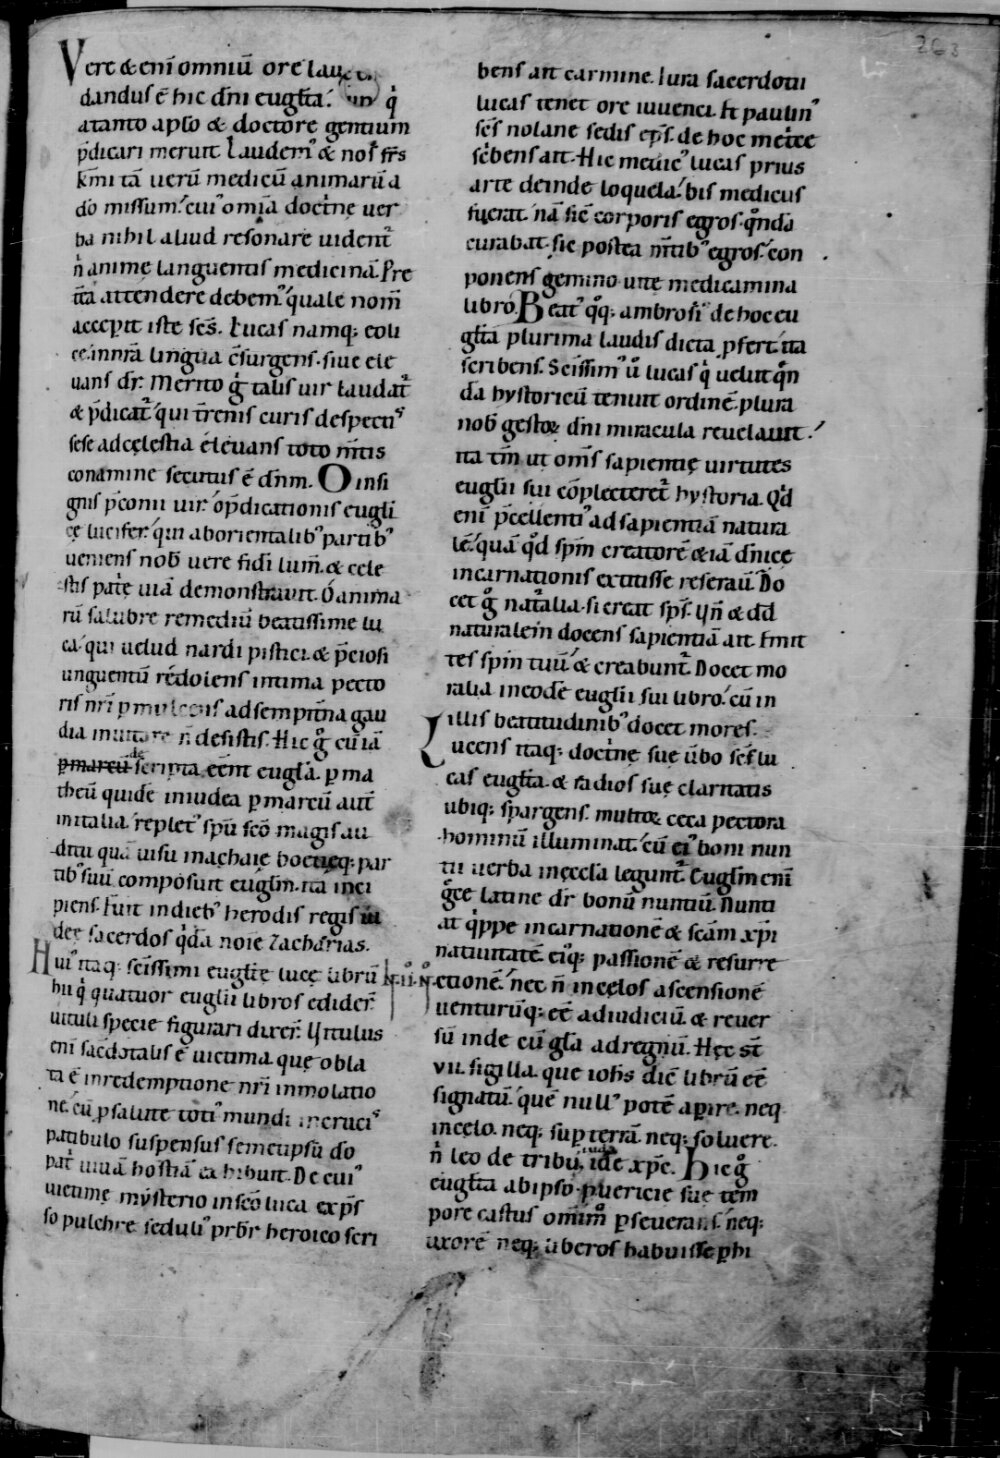 263
Vere & enī omniū ore lau
dandus ē hic dn̄i eugl̄ta. q̇
atanto apl̄o & doctore gentium
p̄dicari meruit. Laudem᷒ & nos fr̄s
km̄i tā uerū medicū animarū a
dō missum. cui᷒ om̄ia doctⁱnę uer
ba nihil aliud resonare uident᷑
n̄ anime languentis medicinā. Pre
t̄ta attendere debem᷒ quale nom̄
accepit iste sc̄s. Lucas namq; eoli
ce. innr̄a lingua c̄surgens. siue ele
uans dr̄. Merito g̊ talis uir laudat᷑
& p̄dicat᷑ qui tr̄enis curis despectis
sese adcęlestia eleuans toto m̄tis
conamine secutus ē dn̄m. O insi
gnis p̄conii uir. o p̄dicationis eugli
cę lucifer. qui aborientalib᷒ partib᷒
ueniens nob̄ uere fidi lum̄. & cele
stis patⁱę uiā demonstrauit. O anima
rū salubre remediū beatissime lu
ca. qui uelud nardi pistici. & p̄ciosi
unguentū redolens intima pecto
ris nr̄i p̱mulcens adsempit̄na gau
dia inuitare n̄ desistis. Hic g̊ cū iā
p̱marcū descripta eēnt eugl̄a. p̱ ma
theū quidē iniudea p̱marcū aut̄
initalia. replet᷒ sp̄u sc̄o magis au
ditu quā uisu inachaie hocusq; par
tib᷒ suū composuit eugl̄m. ita inci
piens. Fuit indieb᷒ herodis regis iu
deę sacerdos q̇dā noīe Zacharias.
Hui᷒ itaq; sc̄issimi eugl̄tę lucę librū
hii q̇ quatuor eugl̄ii libros edider̄.
uituli specie figurari dixer̄. Vitulus
enī sac̄dotalis ē uictima. quę obla
ta ē inredemptione nr̄i inmolatio
ne. cū p̱ salute toti᷒ mundi incrucis
patibulo suspensus semetipsū dō
patⁱ uiuā hostiā exhibuit. De cui᷒
uictimę mysterio insc̄o luca exp̄s
so pulchre seduli᷒ pr̄br̄ heroico scri
bens ait carmine. Iura sacerdotii
lucas tenet ore iuuenci. Et paulin᷒
sc̄s nolane sedis ep̄s. de hoc metⁱce
sc̄bens ait. Hic medic᷒ lucas prius
arte deinde loquela. bis medicus
fuerat. nā sic̄ corporis egros. q̊nda
curabat. sic postea m̄tib᷒ egros. con
ponens gemino uitę medicamina
libro. Beat᷒ q̊q; ambrosi᷒ de hoc eu
gl̄ta plurima laudis dicta p̱fert. ita
scribens. Sc̄issim᷒ ū lucas q̇ uelut q̊n
dā hystoricū tenuit ordinē. plura
nob̄ gestoꝝ dn̄i miracula reuelauit.
ita tm̄ ut om̄s sapientię uirtutes
eugl̄ii sui cōplecteret᷑ hystoria. Qd̄
enī p̄cellenti᷒ ad sapientiā natura
lē. quā qd̄ sp̄m creatorē & iā dn̄icę
incarnationis extitisse reserau̅. Do
cet g̊ nat᷑alia. si creat sp̄s. Vn̄ & dd̄
naturalem docens sapientiā ait. Emit
tes sp̄m tuū. & creabunt᷑. Docet mo
ralia ineodē eugl̄ii sui libro. cū in
illis beatitudinib᷒ docet mores.
Lucens itaq; doctⁱnę suę ūbo sc̄s lu
cas eugl̄ta. & radios suę claritatis
ubiq; spargens. multoꝝ ceca pectora
hominū illuminat. cū ei᷒ boni nun
tii uerba inęccl̄a legunt᷑. Eugl̄m enī
gr̄ce latine dr̄ bonū nuntiū. Nunti
at q̇ppe incarnationē & sc̄am xp̄i
natiuitatē. eiq; passionē & resurre
ctionē. nec n̄ incęlos ascensionē
uenturūq; eē adiudiciū. & reuer
sū inde cū gl̄a adregnū. Hęc st̄
vii. sigilla. que ioh̄s dic̄ librū eē
signatū. quē null᷒ potē aperire. neq
incęlo. neq; sup terrā. neq; soluere.
n̄ leo de tribu iuda idē xp̄c. Hic g̊
eugl̄ta abipso puericie sue tem
pore castus om̄im̊ p̱seuerans. neq;
uxorē neq; liberos habuisse p̱hi